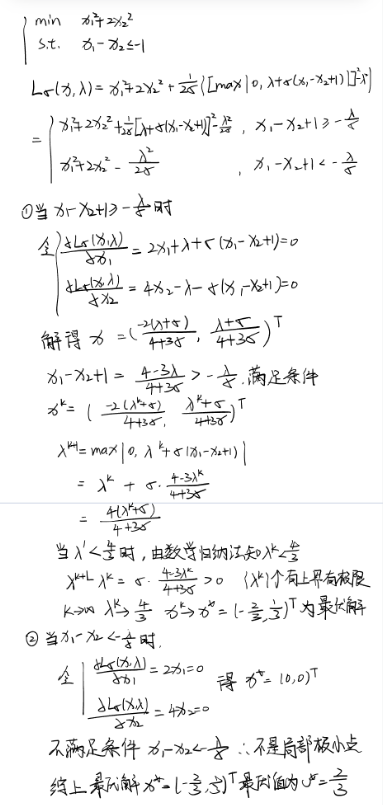 min x₁²+2x₂²
s.t. x₁-x₂≤-1
Lσ(x,λ)=x₁²+2x₂²+1/2σ{[max{0,λ+σ(x₁-x₂+1)}]²-λ²}
= { x₁²+2x₂²+1/2σ[λ+σ(x₁-x₂+1)]²-λ²/2σ , x₁-x₂+1≥-λ/σ
x₁²+2x₂²-λ²/2σ , x₁-x₂+1<-λ/σ
①当x₁-x₂+1≥-λ/σ时
令{ ∂Lσ(x,λ)/∂x₁=2x₁+λ+σ(x₁-x₂+1)=0
∂Lσ(x,λ)/∂x₂=4x₂-λ-σ(x₁-x₂+1)=0
解得 x=(-2(λ+σ)/4+3σ, λ+σ/4+3σ)ᵀ
x₁-x₂+1=4-3λ/4+3σ>-λ/σ.满足条件
xᵏ=(-2(λᵏ+σ)/4+3σ, λᵏ+σ/4+3σ)ᵀ
λᵏ⁺¹=max{0,λᵏ+σ(x₁-x₂+1)}
=λᵏ+σ·4-3λᵏ/4+3σ
=4(λᵏ+σ)/4+3σ
当λ¹<4/3时,由数学归纳法知λᵏ<4/3
λᵏ⁺¹-λᵏ=σ·4-3λᵏ/4+3σ>0 {λᵏ}个有上界有极限
k→∞ λᵏ→4/3 xᵏ→x*=(-2/3,1/3)ᵀ为最优解
②当x₁-x₂<-λ/σ时.
令{ ∂Lσ(x,λ)/∂x₁=2x₁=0 得x*=(0,0)ᵀ
∂Lσ(x,λ)/∂x₂=4x₂=0
不满足条件x₁-x₂<-λ/σ ∴不是局部极小点
综上最优解x*=(-2/3,1/3)ᵀ最优值为υ*=2/3